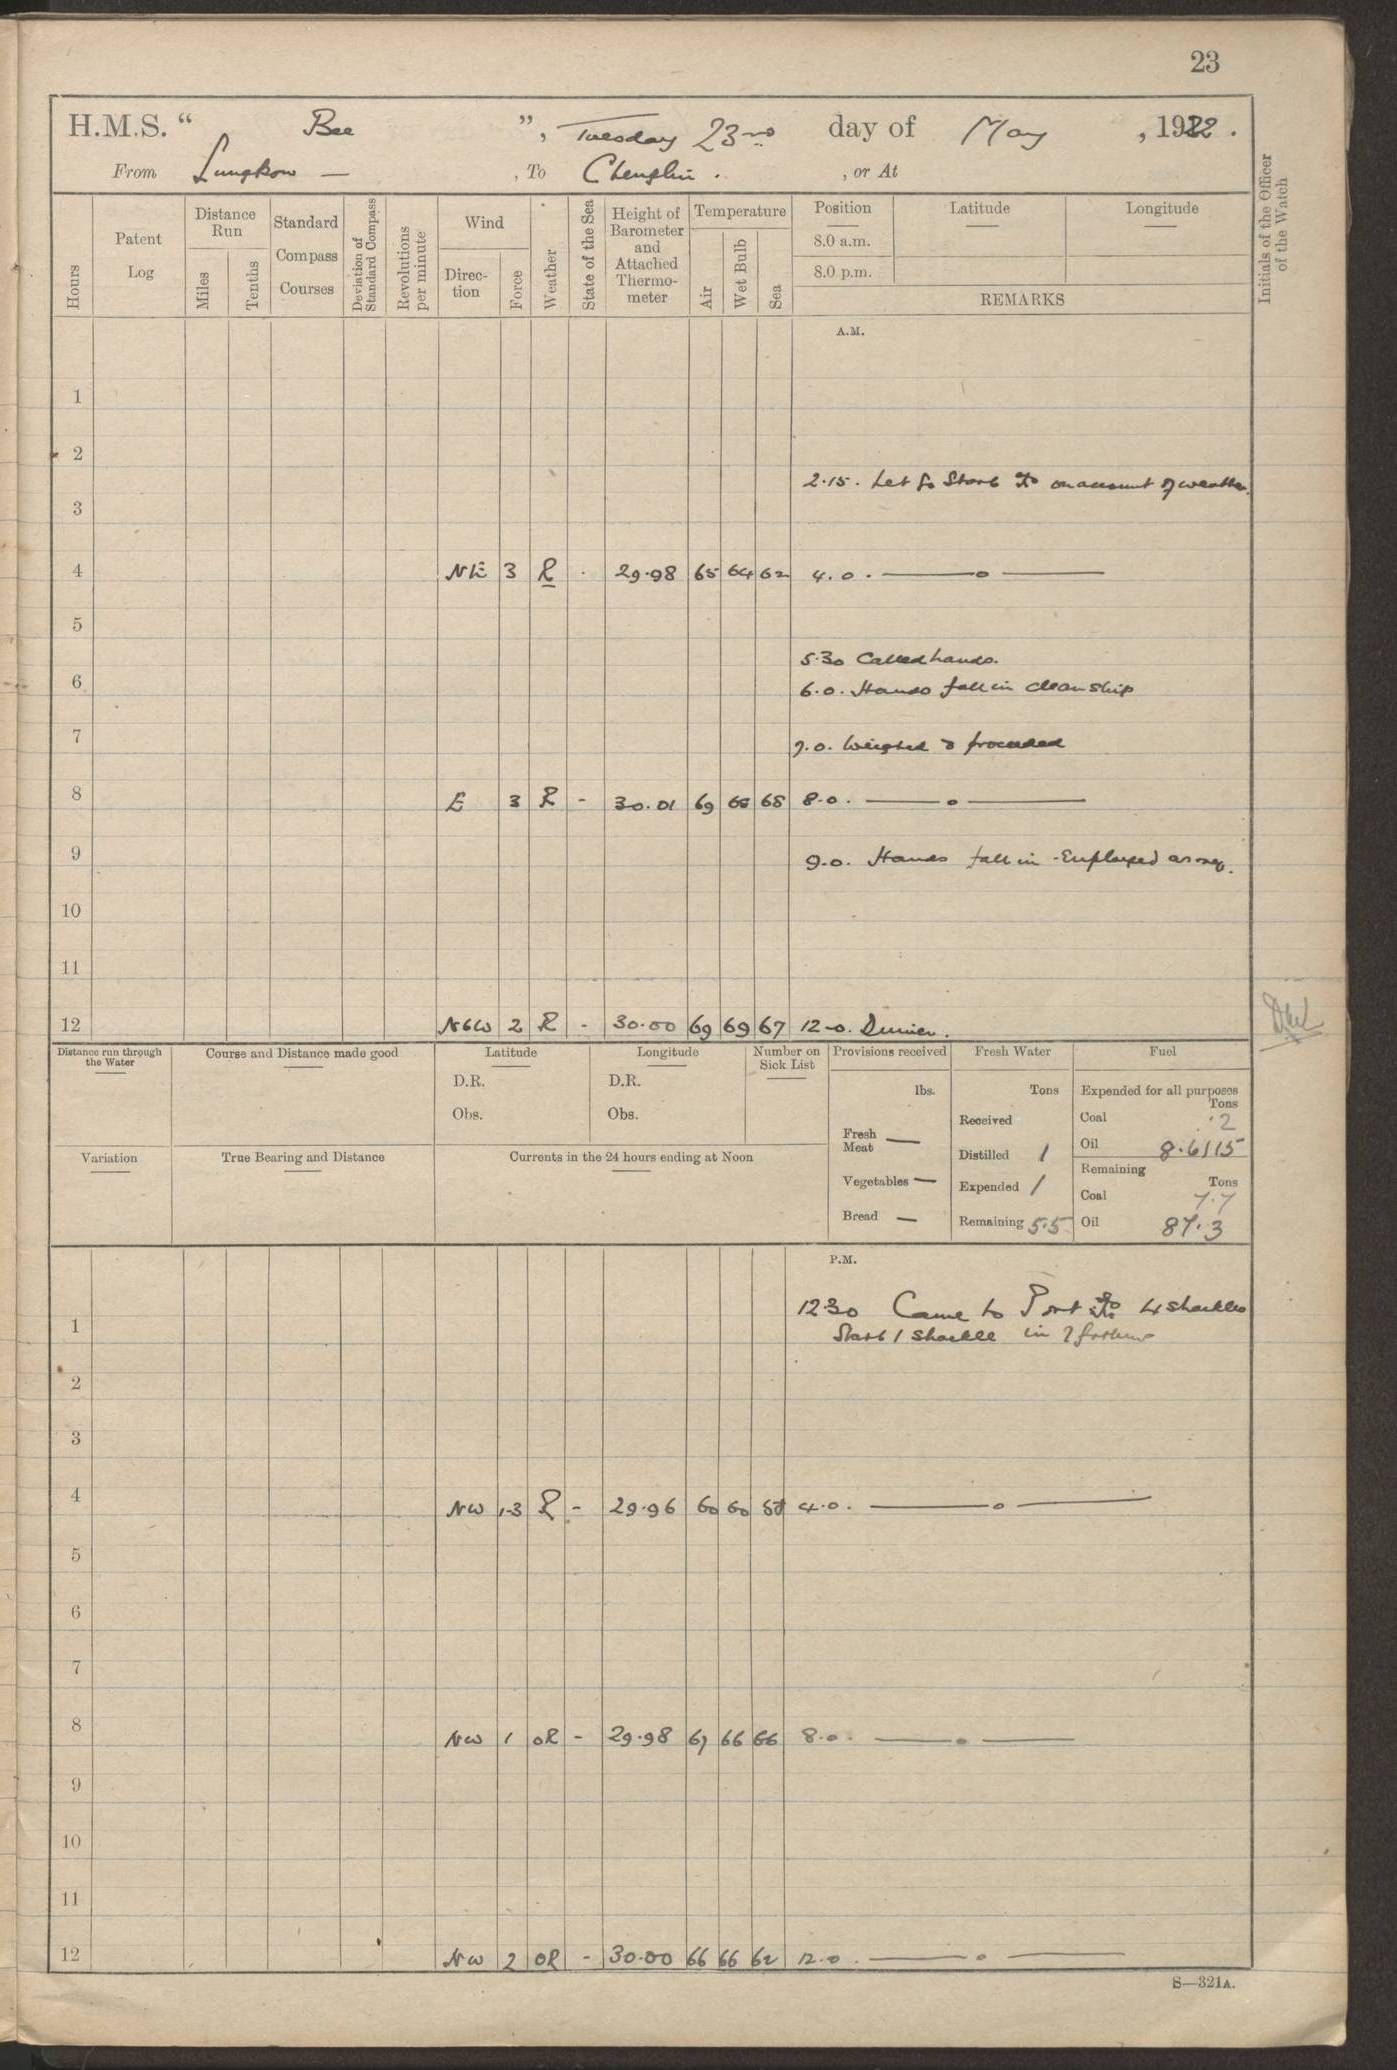 23
H.M.S. “ Bee ”, Tuesday 23rd day of May , 1922 .
From Lungkow — , To Chenglin . , or At
Initials of the Officer of the Watch
Hours
Patent Log
Distance Run
Miles
Tenths
Standard Compass Courses
Deviation of Standard Compass
Revolutions per minute
Wind
Direction
Force
Weather
State of the Sea
Height of Barometer and Attached Thermometer
Temperature
Air
Wet Bulb
Sea
Position
8.0 a.m.
8.0 p.m.
Latitude
Longitude
REMARKS
A.M.
1
2
2.15. Let Go Starb on account of weather.
3
4 NE 3 R . 29.98 65 64 62 4.0. — o —
5
5.30 Called hands.
6 6.0. Hands fall in clean ship
7 7.0. Weighed & proceeded
8 E 3 R - 30.01 69 68 8.0. — o —
9 9.0. Hands fall in. Employed as req.
10
11
12 NbW 2 R - 30.00 69 69 67 12-0. Dinner.
Distance run through the Water
Course and Distance made good
Latitude
D.R.
Obs.
Longitude
D.R.
Obs.
Number on Sick List
Provisions received
lbs.
Fresh Meat —
Vegetables —
Bread —
Fresh Water
Tons
Received
Distilled 1
Expended 1
Remaining 5.5
Fuel
Expended for all purposes
Tons
Coal .2
Oil 8.6115
Remaining
Tons
Coal 7.7
Oil 87.3
Variation
True Bearing and Distance
Currents in the 24 hours ending at Noon
P.M.
12.30 Came to Port 4 shackles
1 Starb 1 shackle in 7 fathoms
2
3
4 NW 1-3 R - 29.96 60 60 4.0. — o —
5
6
7
8 NW 1 OR - 29.98 67 66 66 8.0. — o —
9
10
11
12 NW 2 OR - 30.00 66 66 62 12.0. — o —
S—321A.